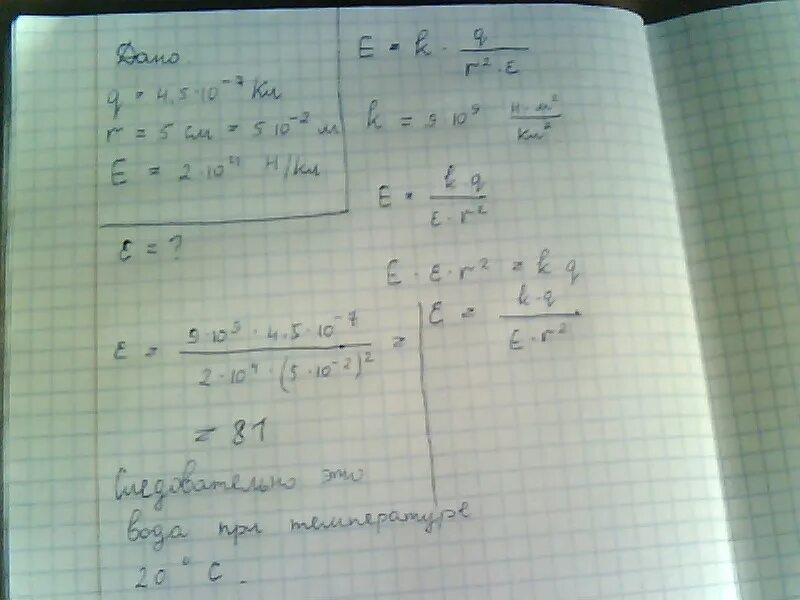 Дано
q = 4,5·10⁻⁷ Кл
r = 5 см = 5 10⁻² м
E = 2·10⁴ Н/Кл
ε = ?
E = k · q / r²·ε
k = 9 10⁹ Н·м² / Кл²
E = k·q / ε·r²
E · ε · r² = k q
ε = k·q / E·r²
ε = 9·10⁹ · 4,5·10⁻⁷ / 2·10⁴ · (5·10⁻²)² =
= 81
Следовательно это
вода при температуре
20° С.